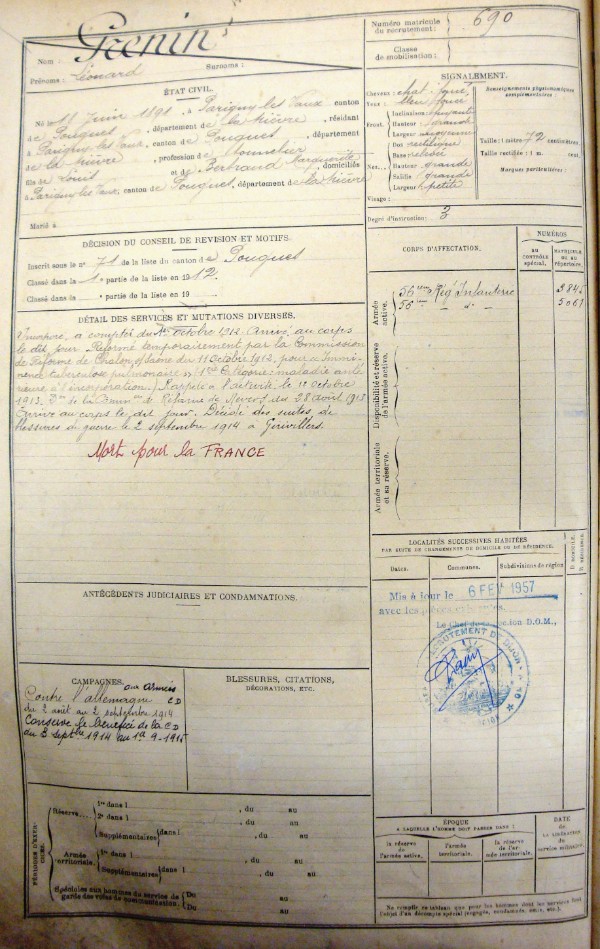 Nom : Grenin
Prénoms : Léonard Surnoms :
Numéro matricule du recrutement : 690
Classe de mobilisation :
ÉTAT CIVIL.
Né le 11 Juin 1891, à Parigny les Vaux, canton
de Pougues, département de la Nièvre, résidant
à Parigny les Vaux, canton de Pougues, département
de la Nièvre, profession de
fils de Louis et de Bertrand Marguerite, domiciliés
à Parigny les Vaux, canton de Pougues, département de la Nièvre
Marié à
SIGNALEMENT.
Cheveux : chat. foncé
Yeux : bleu foncé
Front. Inclinaison : fuyante
Hauteur : grande
Largeur : moyenne
Nez. Dos : rectiligne
Base : relevée
Hauteur : grande
Saillie : grande
Largeur : petite
Visage :
Renseignements physionomiques complémentaires :
Taille : 1 mètre 72 centimètres.
Taille rectifiée : 1 m. cent.
Marques particulières :
Degré d'instruction : 3
DÉCISION DU CONSEIL DE REVISION ET MOTIFS.
Inscrit sous le n° 71 de la liste du canton de Pougues
Classé dans la 1e partie de la liste en 1912.
Classé dans la partie de la liste en 19
CORPS D'AFFECTATION.
NUMÉROS
AU CONTRÔLE SPÉCIAL.
MATRICULE OU AU RÉPERTOIRE.
Armée active.
56ème Rég' Infanterie
56ème " " 5061
Disponibilité et réserve de l'armée active.
Armée territoriale et sa réserve.
DÉTAIL DES SERVICES ET MUTATIONS DIVERSES.
Incorporé, à compter du octobre 1912. Arrivé au corps
le dit jour. Réformé temporairement par la Commission
de Réforme de Chalon s/Saône du 11 Octobre 1912, pour
tuberculose pulmonaire maladie anté
rieure à l'incorporation. Rappelé à l'activité le octobre
1913. de la de Réforme de Nevers du 28 août 1913
Arrivé au corps le dit jour. Décédé des suites de
blessures de guerre le 2 septembre 1914 à Gerivillers.
Mort pour la FRANCE
LOCALITÉS SUCCESSIVES HABITÉES
PAR SUITE DE CHANGEMENTS DE DOMICILE OU DE RÉSIDENCE.
Dates. Communes. Subdivisions de région
D. DOMICILE. R. RÉSIDENCE.
Mis à jour le 6 FEV 1957
avec les pièces
Le Chef de section D.O.M.,
RECRUTEMENT DE DIJON
ANTÉCÉDENTS JUDICIAIRES ET CONDAMNATIONS.
CAMPAGNES.
aux Armées
Contre l'allemagne CD
du 2 août au 2 septembre 1914
Conserve le bénéfice de la CD
du 3 septbre 1914 au
BLESSURES, CITATIONS,
DÉCORATIONS, ETC.
PÉRIODES D'EXERCICES.
Réserve... 1re dans l , du au
2e dans l , du au
Supplémentaires dans l , du au
, du au
Armée territoriale. 1re dans l , du au
Supplémentaires dans l , du au
, du au
Spéciales aux hommes du service de garde des voies de communication. Du au
Du au
ÉPOQUE
A LAQUELLE L'HOMME DOIT PASSER DANS :
la réserve de l'armée active.
l'armée territoriale.
la réserve de l'armée territoriale.
DATE
DE LA LIBÉRATION DU service militaire.
Ne remplir ce tableau que pour les hommes dont les services font l'objet d'un décompte spécial (engagés, condamnés, omis, etc.).